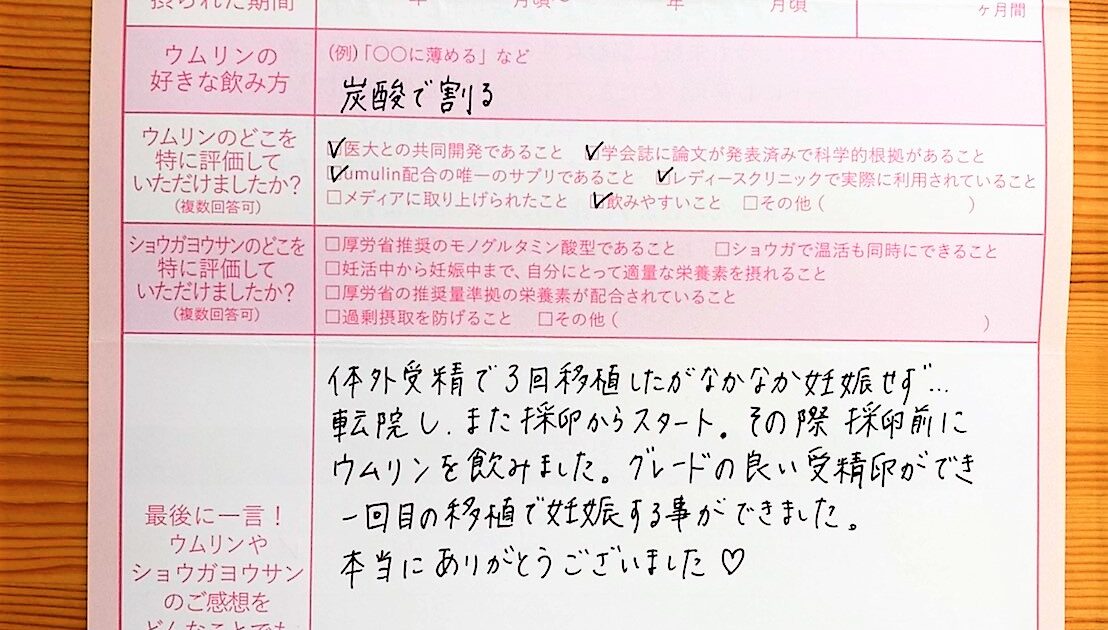 摂られた期間
年 月頃〜 年 月頃
ヶ月間
ウムリンの
好きな飲み方
(例)「〇〇に薄める」など
炭酸で割る
ウムリンのどこを
特に評価して
いただけましたか?
(複数回答可)
☑医大との共同開発であること ☑学会誌に論文が発表済みで科学的根拠があること
☑umulin配合の唯一のサプリであること ☑レディースクリニックで実際に利用されていること
□メディアに取り上げられたこと ☑飲みやすいこと □その他( )
ショウガヨウサンのどこを
特に評価して
いただけましたか?
(複数回答可)
□厚労省推奨のモノグルタミン酸型であること □ショウガで温活も同時にできること
□妊活中から妊娠中まで、自分にとって適量な栄養素を摂れること
□厚労省の推奨量準拠の栄養素が配合されていること
□過剰摂取を防げること □その他( )
最後に一言!
ウムリンや
ショウガヨウサン
のご感想を
どんなことでも
体外受精で3回移植したがなかなか妊娠せず…
転院し、また採卵からスタート。その際 採卵前に
ウムリンを飲みました。グレードの良い受精卵ができ
一回目の移植で妊娠する事ができました。
本当にありがとうございました♡